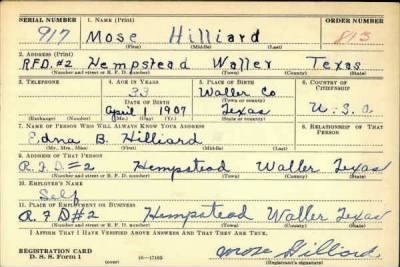 SERIAL NUMBER 1. NAME (Print) ORDER NUMBER
917 Mose Hilliard 813
(First) (Middle) (Last)
2. ADDRESS (Print)
R.F.D. #2 Hempstead Waller Texas
(Number and street or R. F. D. number) (Town) (County) (State)
3. TELEPHONE 4. AGE IN YEARS 5. PLACE OF BIRTH 6. COUNTRY OF CITIZENSHIP
33 Waller Co
DATE OF BIRTH (Town or county)
April 1 1907 Texas U.S.A.
(Exchange) (Number) (Mo.) (Day) (Yr.) (State or country)
7. NAME OF PERSON WHO WILL ALWAYS KNOW YOUR ADDRESS 8. RELATIONSHIP OF THAT PERSON
Edna B. Hilliard
(Mr., Mrs., Miss) (First) (Middle) (Last)
9. ADDRESS OF THAT PERSON
R.F.D=2 Hempstead Waller Texas
(Number and street or R. F. D. number) (Town) (County) (State)
10. EMPLOYER'S NAME
Self
11. PLACE OF EMPLOYMENT OR BUSINESS
R.F D#2 Hempstead Waller Texas
(Number and street or R. F. D. number) (Town) (County) (State)
I AFFIRM THAT I HAVE VERIFIED ABOVE ANSWERS AND THAT THEY ARE TRUE.
REGISTRATION CARD
D. S. S. Form 1 (over) 16-17105
Mose Hilliard
(Registrant's signature)